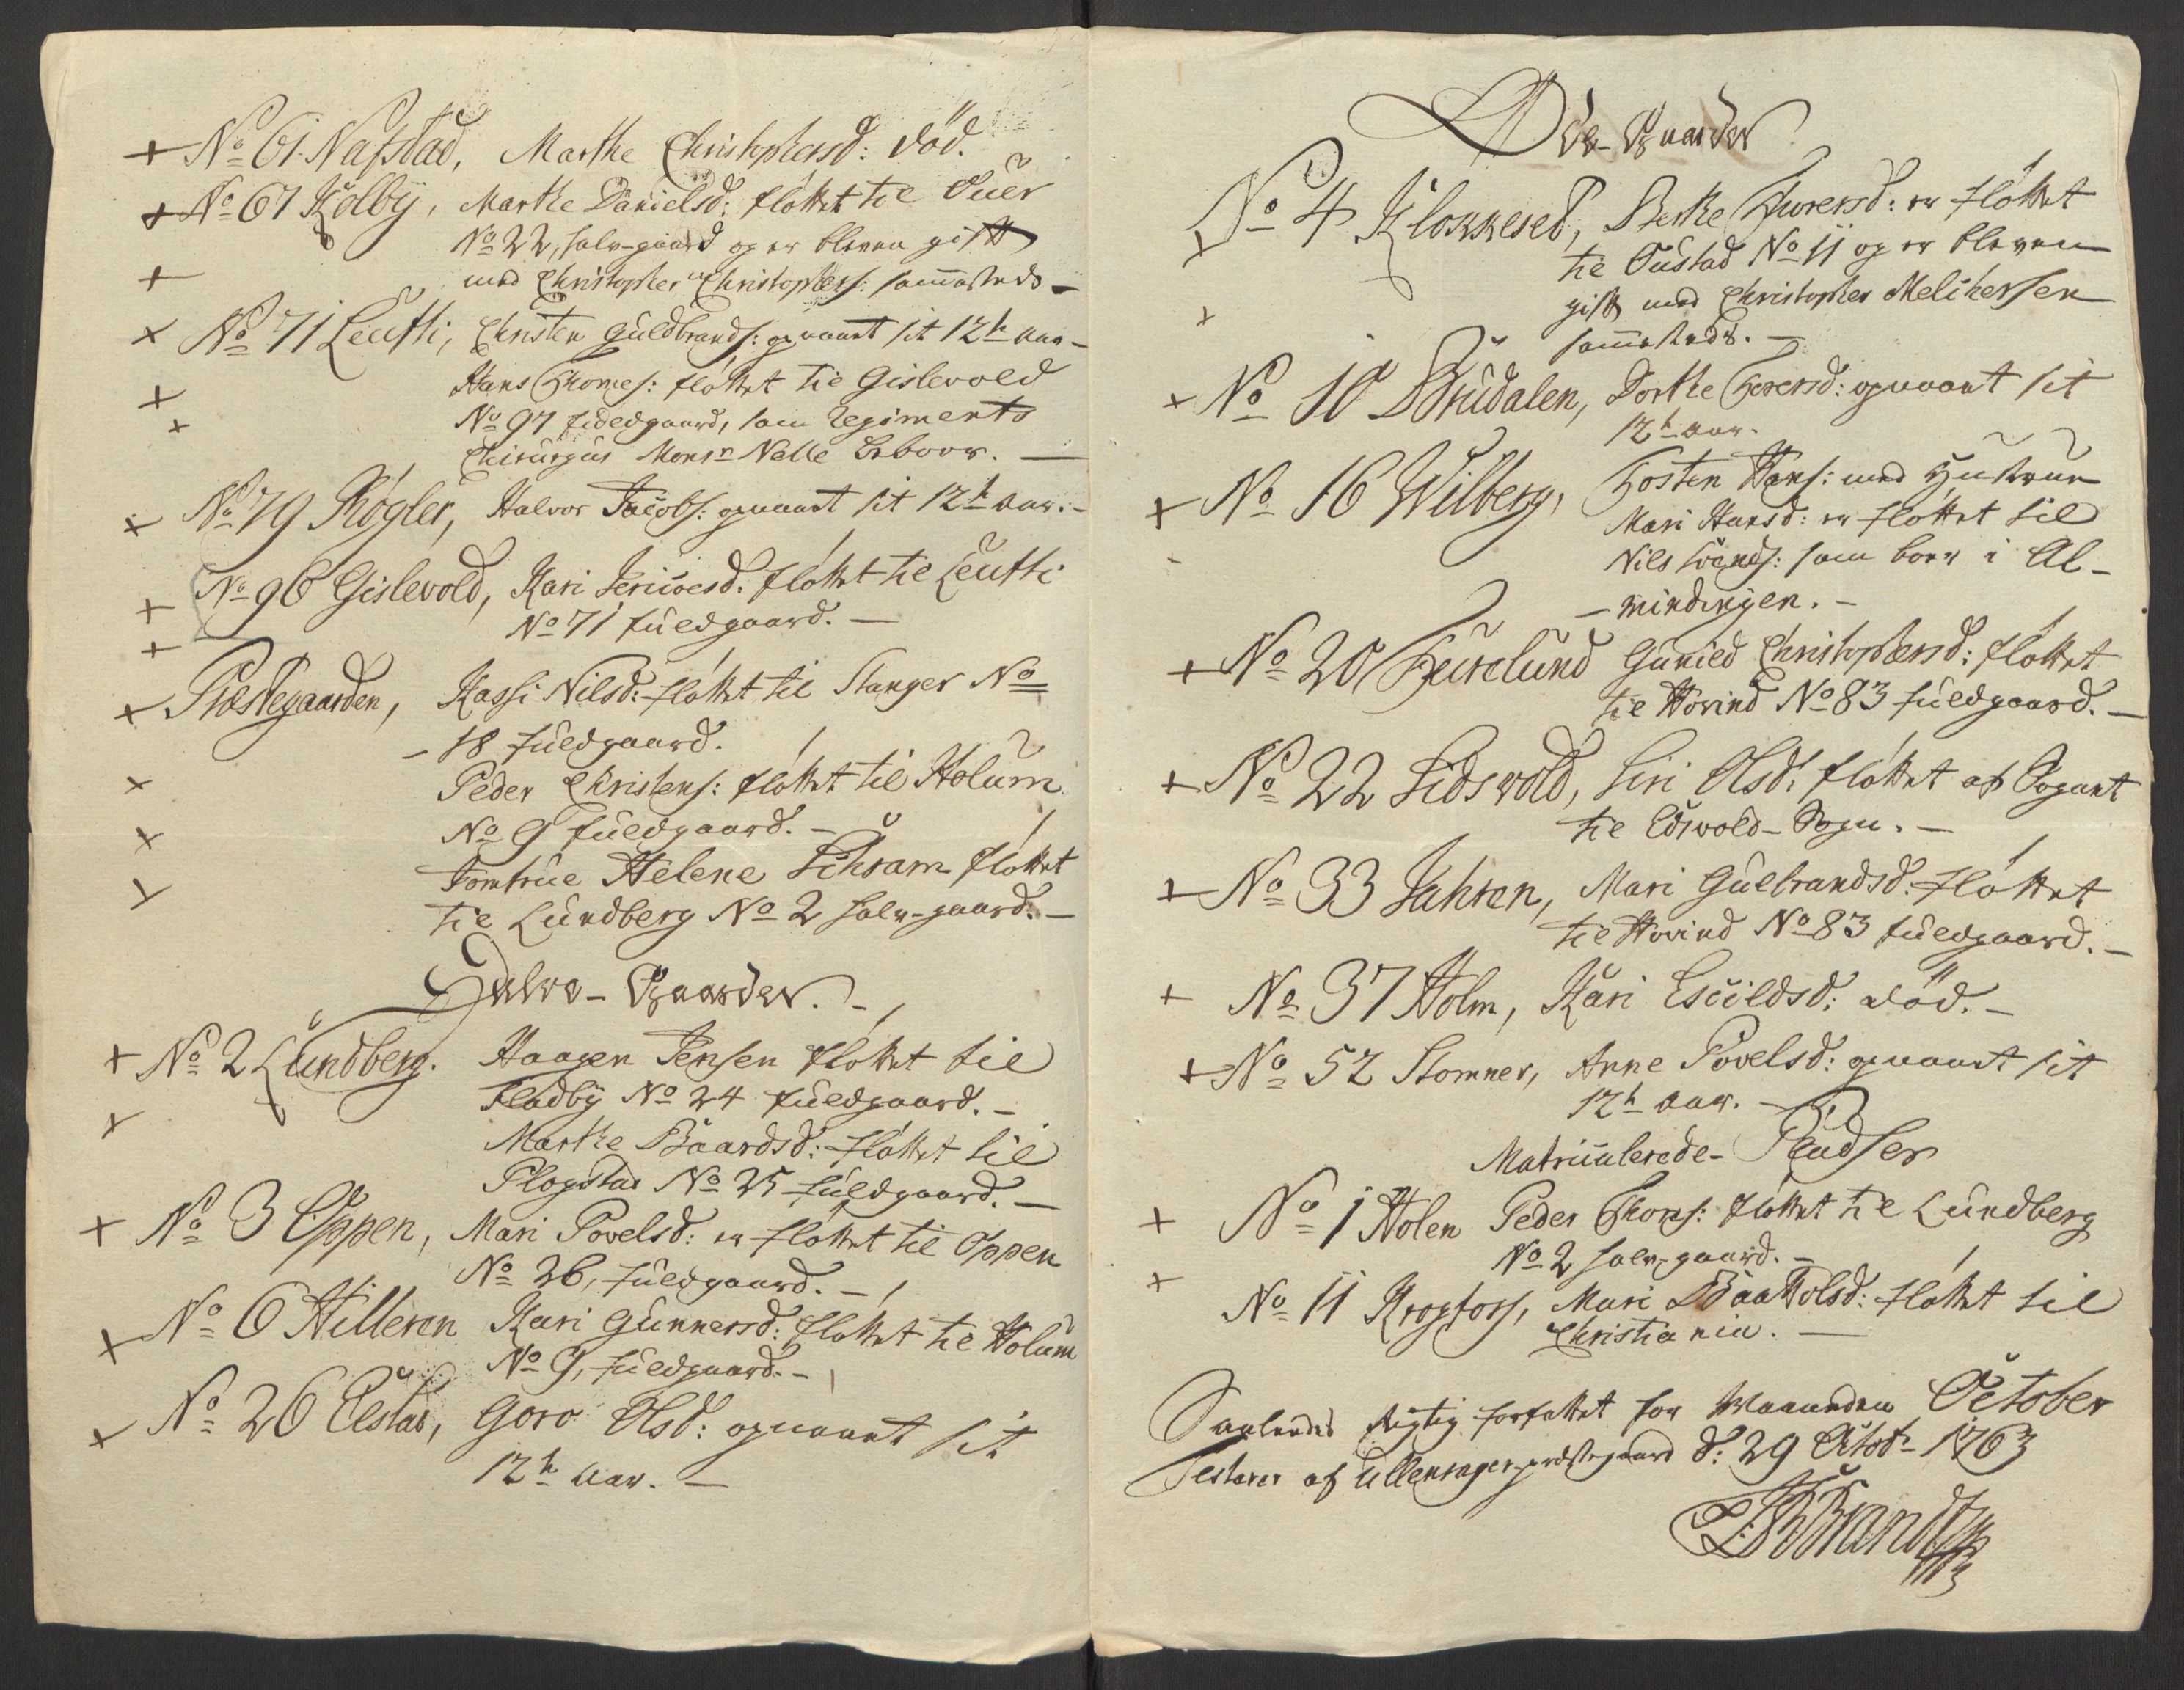 + No 61 Nafstad, Marthe Christophersd: död.
+ No 67 Kölbÿ, Marthe Danielsd: flöttet til Duer
No 22, halv-gaard og er bleven gift
+ med Christopher Christophers: sammesteds
+ No 71 Leufti, Christen Guldbrands: opnaaet sit 12te Aar
+ Hans Thomes: flöttet til Gislevold
+ No 97 fuldgaard, som Regiments
Chirurgus Monsr Nelle beboer.
+ No 79 Rögler, Halvor Jacobs: opnaaet sit 12te Aar.
+ No 96 Gislevold, Kari Iversd: flöttet til Leufti
+ No 71 fuldgaard.
+ Præstegaarden, Kassi Nilsd: flöttet til Stanger No
18 fuldgaard.
+ Peder Christens: flöttet til Holum
+ No 9 fuldgaard.
+ Jomfrue Helene flöttet
til Lundberg No 2 halv-gaard.
Halve-Gaarder.
+ No 2 Lundberg. Haagen Jensen flöttet til
+ Fladbÿ No 24 fuldgaard.
Marthe Baardsd: flöttet til
Plogstad No 25 fuldgaard.
+ No 3 Oppen, Mari Povelsd: er flöttet til Oppen
No 26, fuldgaard.
+ No 6 Hilleren Kari Gunnersd: flöttet til Holum
No 9, fuldgaard.
+ No 26 Elstad, Goro Olsd: opnaaet sit
12te Aar.
Öde-Gaarder
+ No 4 Klokkesed, Berthe Iversd: er flöttet
til Tustad No 11 og er bleven
+ gift med Christopher Melchersen
sammesteds.
+ No 10 Brudalen, Dorthe Iversd: opnaaet sit
12te Aar.
+ No 16 Wilberg, Tosten Hans: med Hustrue
Mari Hansd: er flöttet til
- Nils Svends: som boer i Al-
- mindingen.
+ No 20 Furelund Gunild Christophersd: flöttet
til Hovind No 83 fuldgaard.
+ No 22 Lidsvold, Siri Olsd: flöttet af Sognet
til Edsvold-Sogn.
+ No 33 Jahren, Mari Gulbrandsd: flöttet
til Hovind No 83 fuldgaard.
+ No 37 Holm, Kari Escildsd: död.
+ No 52 Stomner, Anne Povelsd: opnaaet sit
12te Aar.
Matriculerede-Pladser
+ No 1 Holen Peder Thoms: flöttet til Lundberg
No 2 halv-gaard.
+ No 11 Krogfoss, Mari flöttet til
Christiania.
Saaledes rigtig forfattet for Maaneden October
Testerer af Ullensager-præstegaard d: 29 Octobr 1763
Brandt